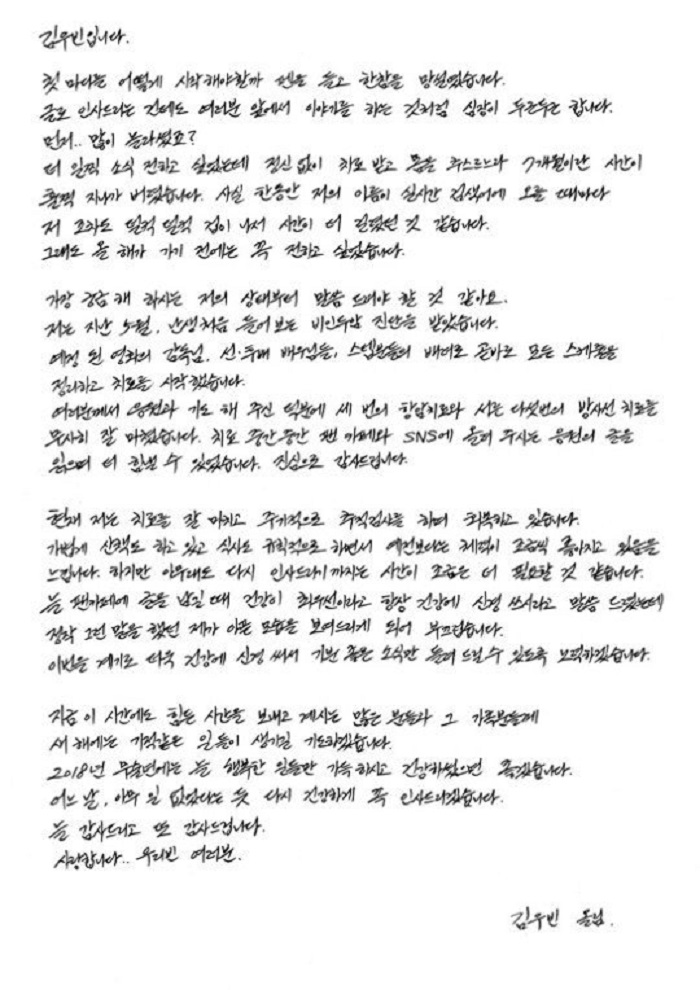 김우빈입니다.
첫 마디는 어떻게 시작해야할까 펜을 들고 한참을 망설였습니다.
글로 인사드리는 건데도 여러분 앞에서 이야기를 하는 것처럼 심장이 두근두근 합니다.
먼저.. 많이 놀라셨죠?
더 일찍 소식 전하고 싶었는데 정신 없이 치료 받고 몸을 추스르느라 7개월이란 시간이
훌쩍 지나가 버렸습니다. 사실 한동안 저의 이름이 실시간 검색어에 오를 때마다
저 조차도 덜컥 덜컥 겁이 나서 시간이 더 걸렸던 것 같습니다.
그래도 올 해가 가기 전에는 꼭 전하고 싶었습니다.
가장 궁금해 하시는 저의 상태부터 말씀 드려야 할 것 같아요.
저는 지난 5월, 난생처음 들어보는 비인두암 진단을 받았습니다.
예정 된 영화의 감독님, 선·후배 배우님들, 스텝분들의 배려로 곧바로 모든 스케줄을
정리하고 치료를 시작했습니다.
여러분께서 응원과 기도 해 주신 덕분에 세 번의 항암치료와 서른 다섯번의 방사선 치료를
무사히 잘 마쳤습니다. 치료 중간중간 팬 카페와 SNS에 올려 주시는 응원의 글을
읽으며 더 힘낼 수 있었습니다. 진심으로 감사드립니다.
현재 저는 치료를 잘 마치고 주기적으로 추적검사를 하며 회복하고 있습니다.
가볍게 산책도 하고 있고 식사도 규칙적으로 하면서 예전보다는 체력이 조금씩 좋아지고 있음을
느낍니다. 하지만 아무래도 다시 인사드리기까지는 시간이 조금은 더 필요할 것 같습니다.
늘 팬카페에 글을 남길 때 건강이 최우선이라고 항상 건강에 신경 쓰시라고 말씀 드렸는데
정작 그런 말을 했던 제가 아픈 모습을 보여드리게 되어 부끄럽습니다.
이번을 계기로 더욱 건강에 신경 써서 기분 좋은 소식만 들려 드릴 수 있도록 노력하겠습니다.
지금 이 시간에도 힘든 시간을 보내고 계시는 많은 분들과 그 가족분들께
새 해에는 기적같은 일들이 생기길 기도하겠습니다.
2018년 무술년에는 늘 행복한 일들만 가득하시고 건강하셨으면 좋겠습니다.
어느 날, 아무 일 없었다는 듯 다시 건강하게 꼭 인사드리겠습니다.
늘 감사드리고 또 감사드립니다.
사랑합니다.. 우리빈 여러분.
김우빈 올림.